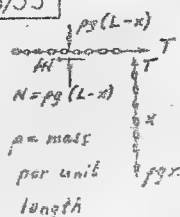 ρg(L-x)
T
μN
T
N = ρg(L-x)
x
ρ = mass
per unit
length
ρgx